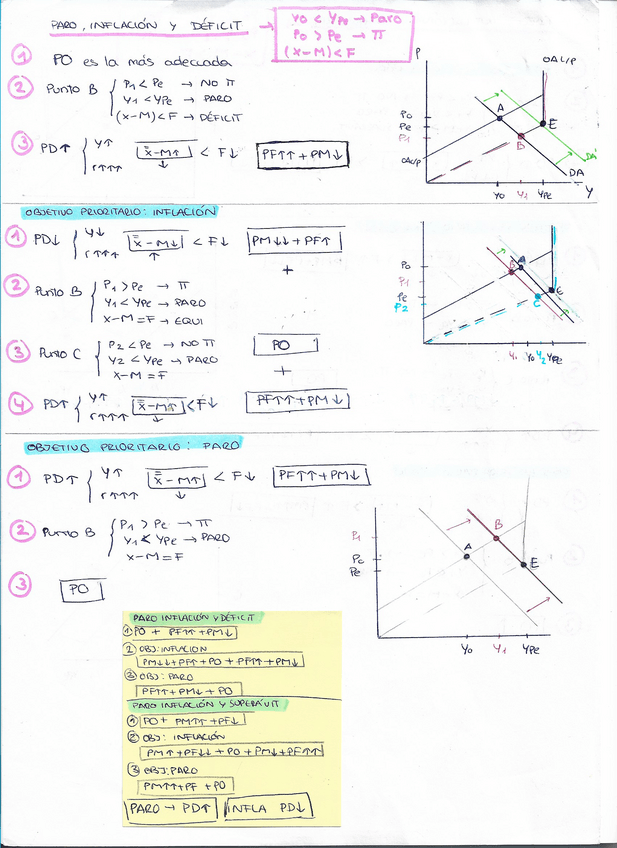 PARO, INFLACIÓN Y DÉFICIT → Y0 < YPe → PARO
P0 > Pe → π
(X-M) < F
① PO es la más adecuada
② PUNTO B { P1 < Pe → NO π
Y1 < YPe → PARO
(X-M) < F → DÉFICIT
③ PD↑ { Y↑
r↑↑↑↑ X-M↑ ↓ < F↓ PF↑↑ + PM↓
P
OAL/P
P0
Pe
P1
OAC/P
A
B
E
DA'
DA
Y0 Y1 YPE Y
OBJETIVO PRIORITARIO: INFLACIÓN
① PD↓ { Y↓
r↑↑↑↑ X-M↓ ↑ < F↓ PM↓↓ + PF↑
+
② PUNTO B { P1 > Pe → π
Y1 < YPE → PARO
X-M = F → EQUI
③ PUNTO C { P2 < Pe → NO π
Y2 < YPE → PARO
X-M = F
PO
+
④ PD↑ { Y↑
r↑↑↑ X-M↑ ↓ < F↓ PF↑↑ + PM↓
P0
P1
Pe
P2
B A
E
C
Y1 Y0 Y2 YPE
OBJETIVO PRIORITARIO: PARO
① PD↑ { Y↑
r↑↑↑↑ X-M↑ ↓ < F↓ PF↑↑ + PM↓
② PUNTO B { P1 > Pe → π
Y1 < YPE → PARO
X-M = F
③ PO
P1
P0
Pe
B
A
E
Y0 Y1 YPE
PARO INFLACIÓN Y DÉFICIT
① PO + PF↑↑ + PM↓
② OBJ: INFLACIÓN
PM↓↓ + PF↑ + PO + PF↑↑ + PM↓
③ OBJ: PARO
PF↑↑ + PM↓ + PO
PARO INFLACIÓN Y SUPERÁVIT
① PO + PM↑↑ + PF↓
② OBJ: INFLACIÓN
PM↑ + PF↓↓ + PO + PM↓ + PF↑↑
③ OBJ: PARO
PM↑↑ + PF + PO
PARO → PD↑ INFLA PD↓